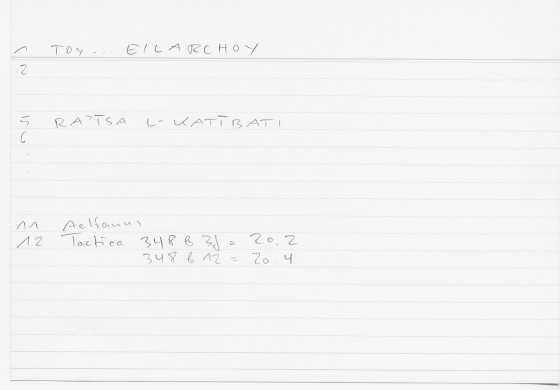 1 TOY... EILARCHOY
2
5 RA'ĪSA L-KATĪBATI
6
11 Aelianus
12 Tactica 348 B 3f = 20.2
348 B 12 = 20.4